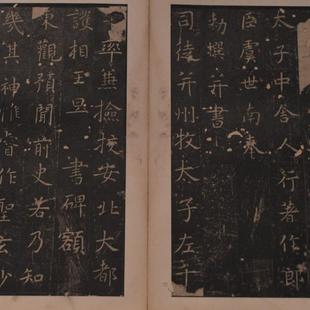 太子中舍人行著作郎
臣虞世南奉
勑撰并書
司徒并州牧太子左千
牛率兼撿挍安北大都
護相王旦書碑額
東觀殘聞前史若乃知
幾其神惟睿作聖玄妙